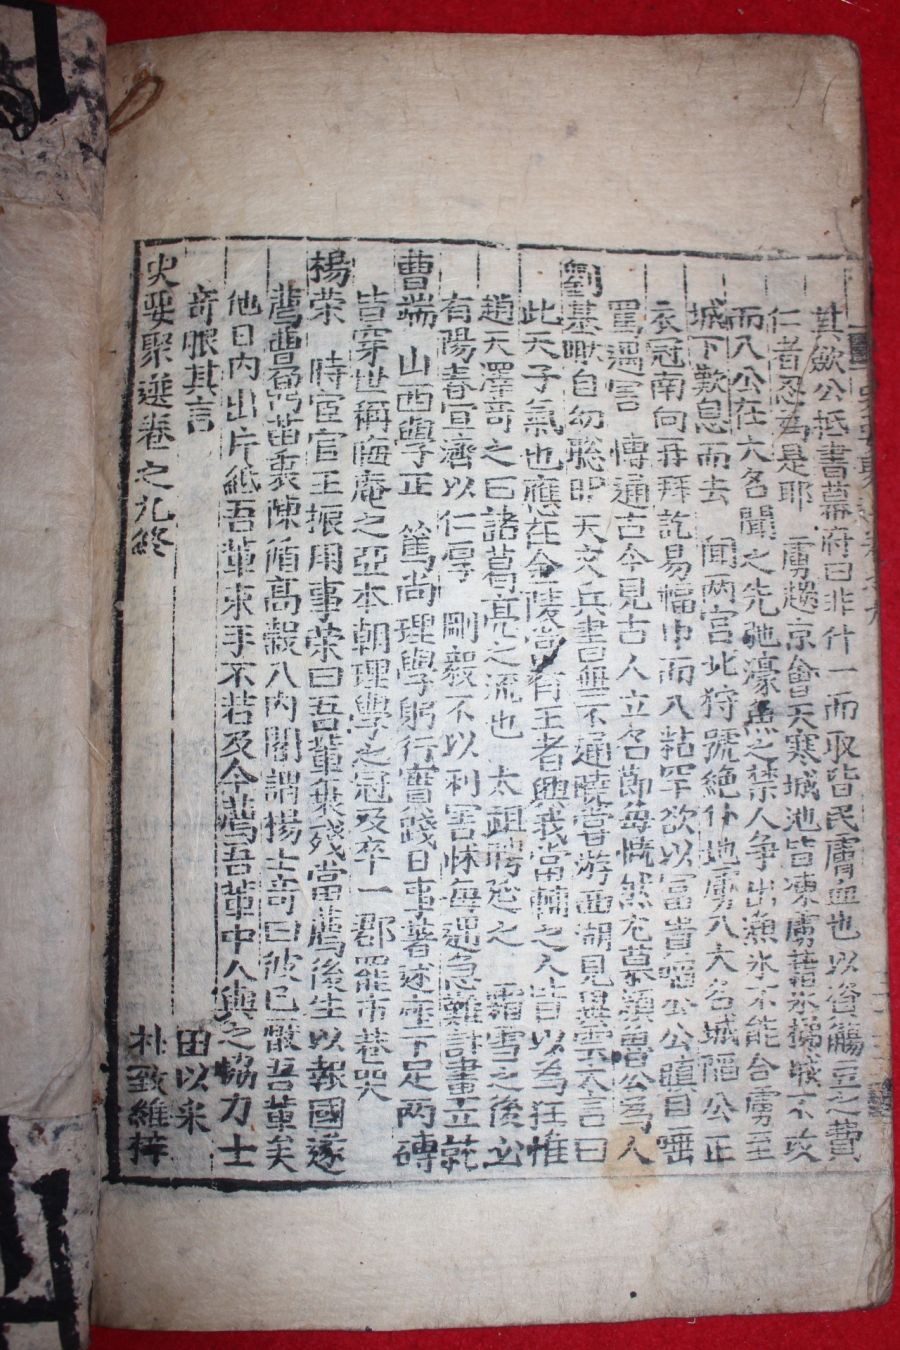 其歛公抵書幕府曰非什一而取皆民膚血也以資觴豆之費
仁者忍爲是耶 虜趍京會天寒城池皆凍虜藉氷梯城不攻
而入公在大名聞之先弛濠魚之禁人争出漁氷不能合虜至
城下歎息而去 聞兩宮北狩號絶仆地虜入大名城陷公正
衣冠南向再拜訖易幅巾而入粘罕欲以富貴啗公公瞋目唾
罵遇害 博通古今見古人立名節每慨然充慕類魯公爲人
劉基 自幼聡明天文兵書無不通曉甞游西湖見異雲大言曰
此天子氣也應在金陵當有王者興我當輔之人皆以爲狂惟
趙天澤奇之曰諸葛亮之流也 太祖聘 之 霜雪之後必
有陽春宣濟以仁厚 剛毅不以利害怵每遇急難計畫立就
曹端 山西學正 篤尚理學躬行實踐日事著述座下足兩磚
皆穿世稱晦庵之亞本朝理學之冠及卒一郡罷市巷哭
楊荣 時宦官王振用事荣曰吾輩衰殘當薦後生以報國遂
薦曺鼐苗衷陳循高穀入内閣謂楊士奇曰彼已 吾輩矣
他日内出片紙吾輩束手不若及今薦吾輩中人與之協力士
奇服其言
田以采
史要聚選卷之九終
朴致維梓